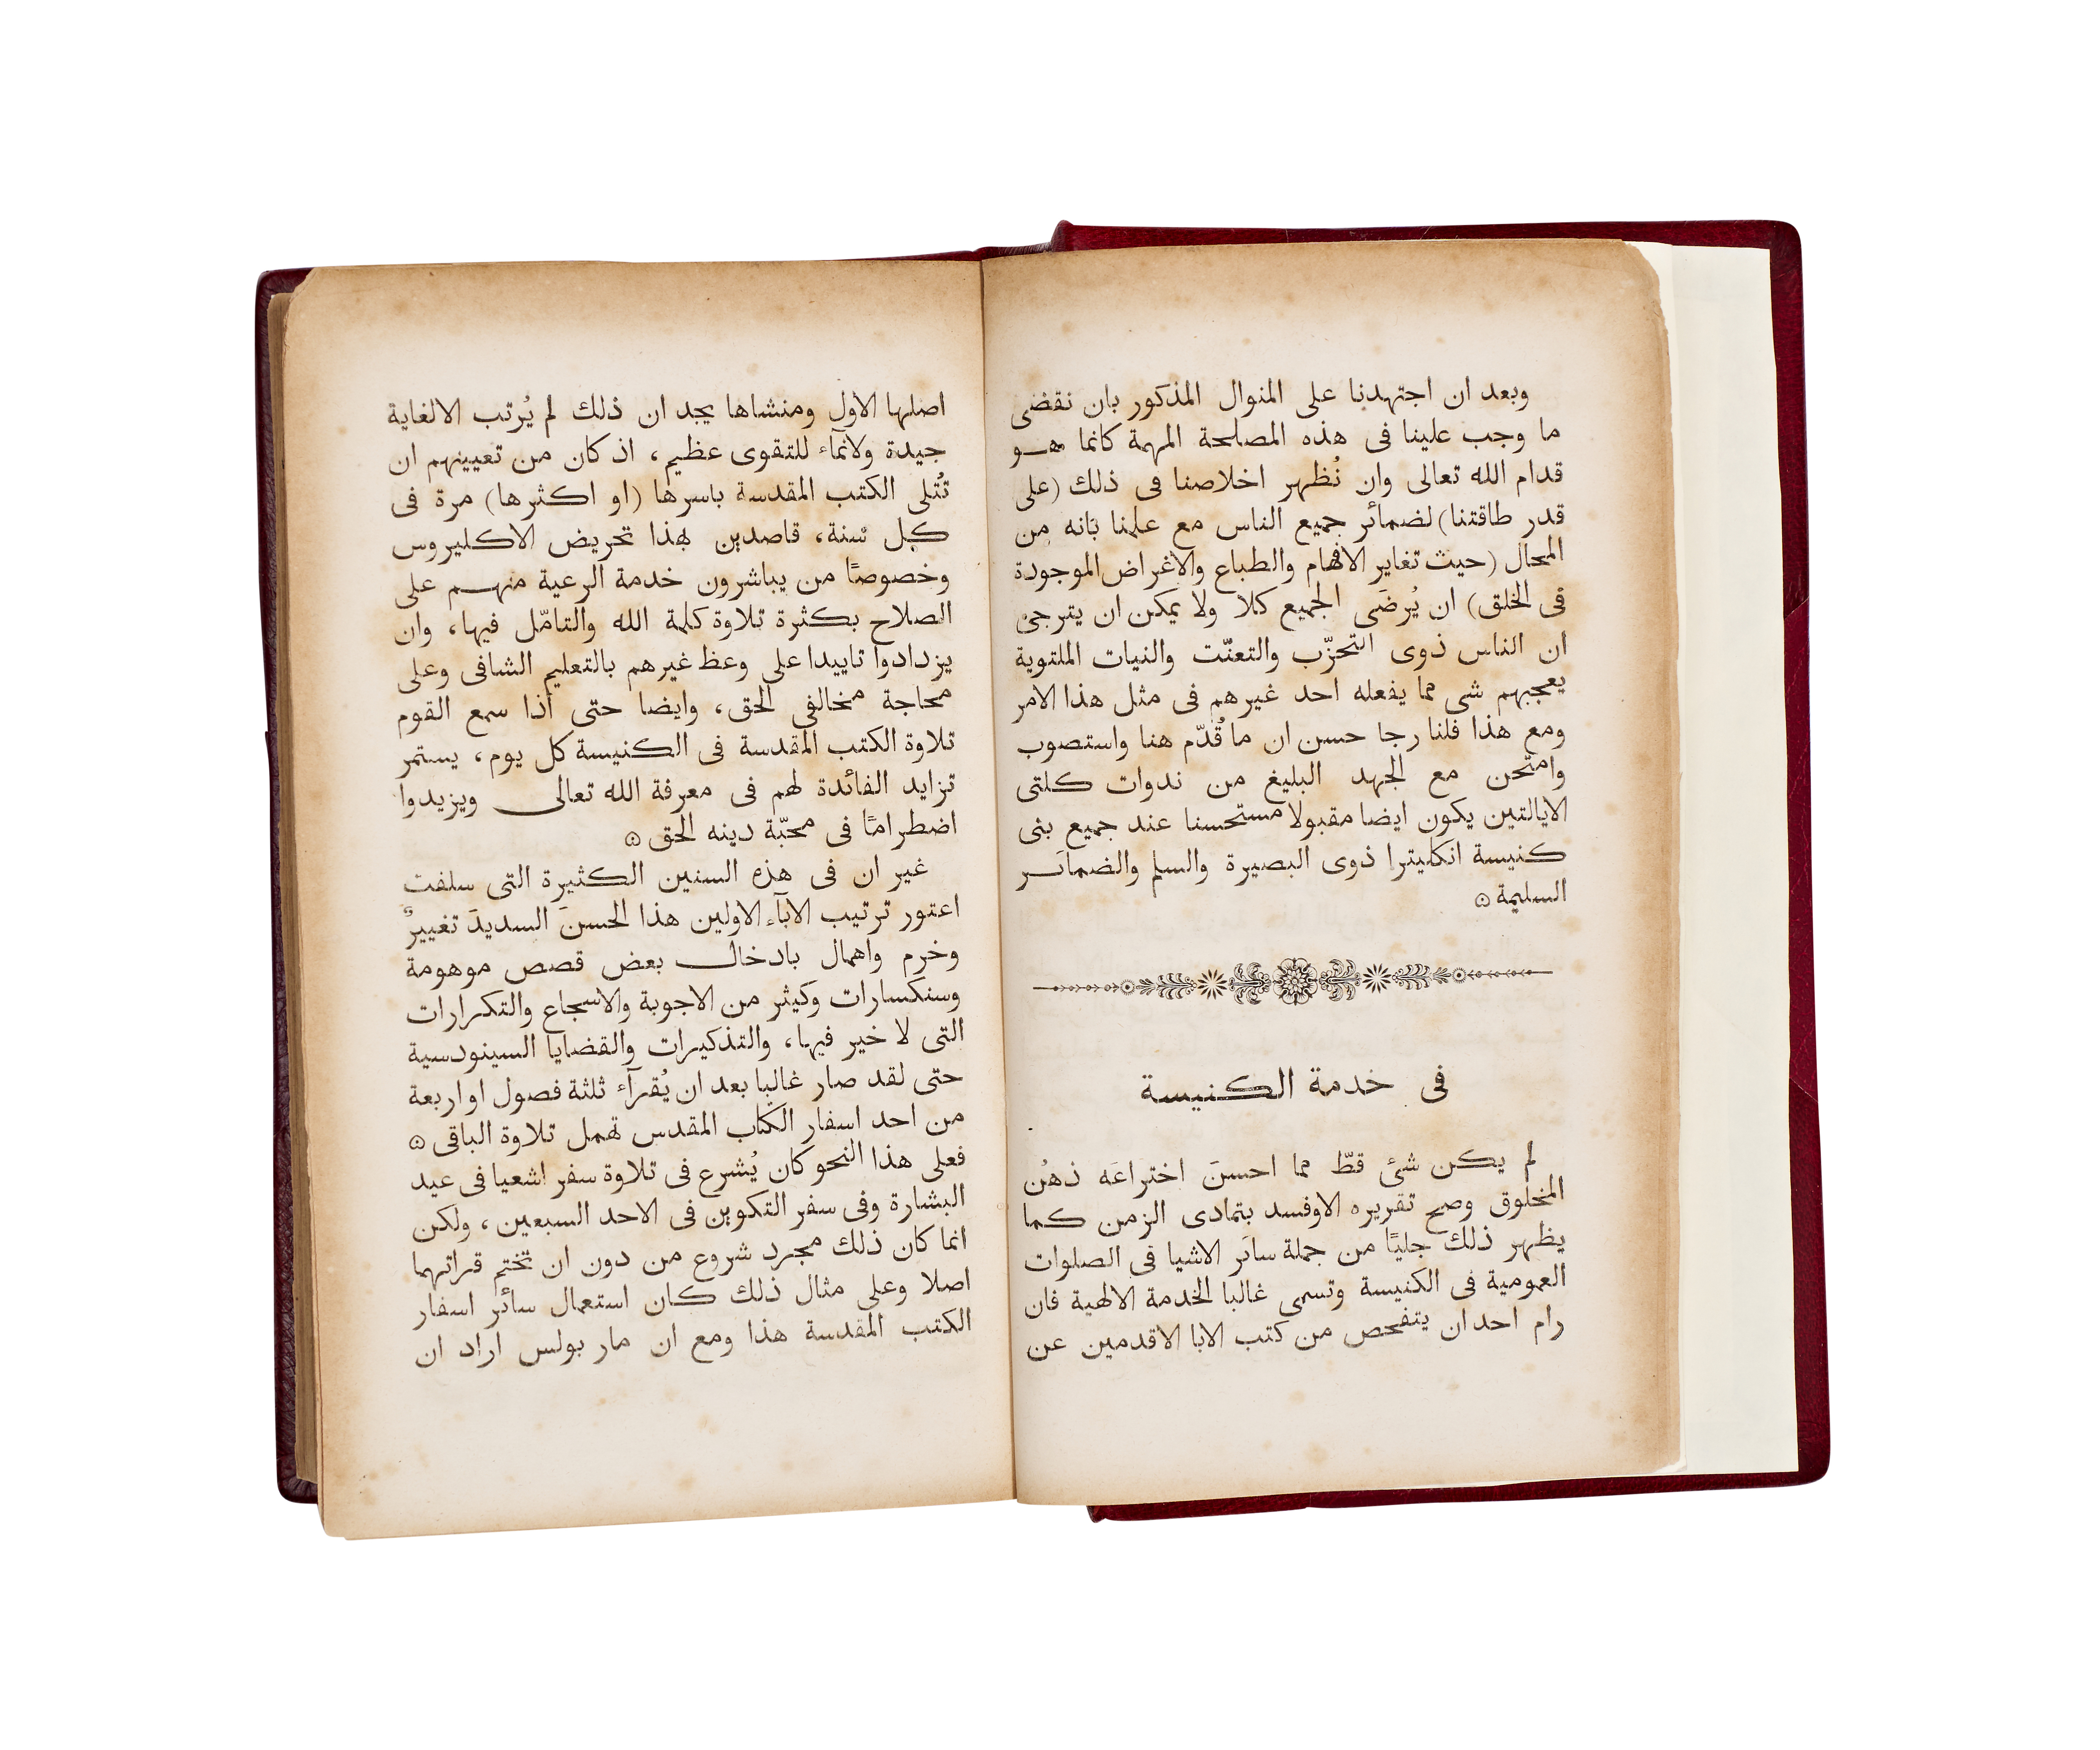 وبعد ان اجتهدنا على المنوال المذكور بان نقضى
ما وجب علينا فى هذه المصلحة المهمة كانما هو
قدام الله تعالى وان نُظهر اخلاصنا فى ذلك (على
قدر طاقتنا) لضمائر جميع الناس مع علمنا بانه من
المحال (حيث تغاير الافهام والطباع والاغراض الموجودة
فى الخلق) ان يُرضَى الجميع كلا ولا يمكن ان يترجى
ان الناس ذوى التحزّب والتعنّت والنيات الملتوية
يعجبهم شى مما يفعله احد غيرهم فى مثل هذا الامر
ومع هذا فلنا رجا حسن ان ما قُدّم هنا واستصوب
وامتحن مع الجهد البليغ من ندوات كلتى
الايالتين يكون ايضا مقبولا مستحسنا عند جميع بنى
كنيسة انكليترا ذوى البصيرة والسلم والضمائر
السليمة ۞
فى خدمة الكنيسة
لم يكن شئ قطّ مما احسنَ اختراعَه ذهنُ
المخلوق وصح تقريره الاوفسد بتمادى الزمن كما
يظهر ذلك جليًا من جملة سائر الاشيا فى الصلوات
العمومية فى الكنيسة وتسمى غالبا الخدمة الالهية فان
رام احد ان يتفحص من كتب الابا الاقدمين عن
اصلها الاول ومنشاها يجد ان ذلك لم يُرتب الالغاية
جيدة ولانمآء للتقوى عظيم، اذ كان من تعيينهم ان
تُتلى الكتب المقدسة باسرها (او اكثرها) مرة فى
كل سنة، قاصدين بهذا تحريض الاكليروس
وخصوصًا من يباشرون خدمة الرعية منهم على
الصلاح بكثرة تلاوة كلمة الله والتامّل فيها، وان
يزدادوا تاييدا على وعظ غيرهم بالتعليم الشافى وعلى
محاجة مخالفى الحق، وايضا حتى اذا سمع القوم
تلاوة الكتب المقدسة فى الكنيسة كل يوم، يستمر
تزايد الفائدة لهم فى معرفة الله تعالى ويزيدوا
اضطرامًا فى محبّة دينه الحق ۞
غير ان فى هذه السنين الكثيرة التى سلفت
اعتور ترتيب الابآء الاولين هذا الحسنَ السديدَ تغييرٌ
وخرم واهمال بادخال بعض قصص موهومة
وسنكسارات وكيثر من الاجوبة والاسجاع والتكرارات
التى لا خير فيها، والتذكيرات والقضايا السينودسية
حتى لقد صار غالبا بعد ان يُقرآء ثلثة فصول او اربعة
من احد اسفار الكتاب المقدس تهمل تلاوة الباقى ۞
فعلى هذا النحو كان يُشرع فى تلاوة سفر اشعيا فى عيد
البشارة وفى سفر التكوين فى الاحد السبعين، ولكن
انما كان ذلك مجرد شروع من دون ان تختم قراتهما
اصلا وعلى مثال ذلك كان استعمال سائر اسفار
الكتب المقدسة هذا ومع ان مار بولس اراد ان